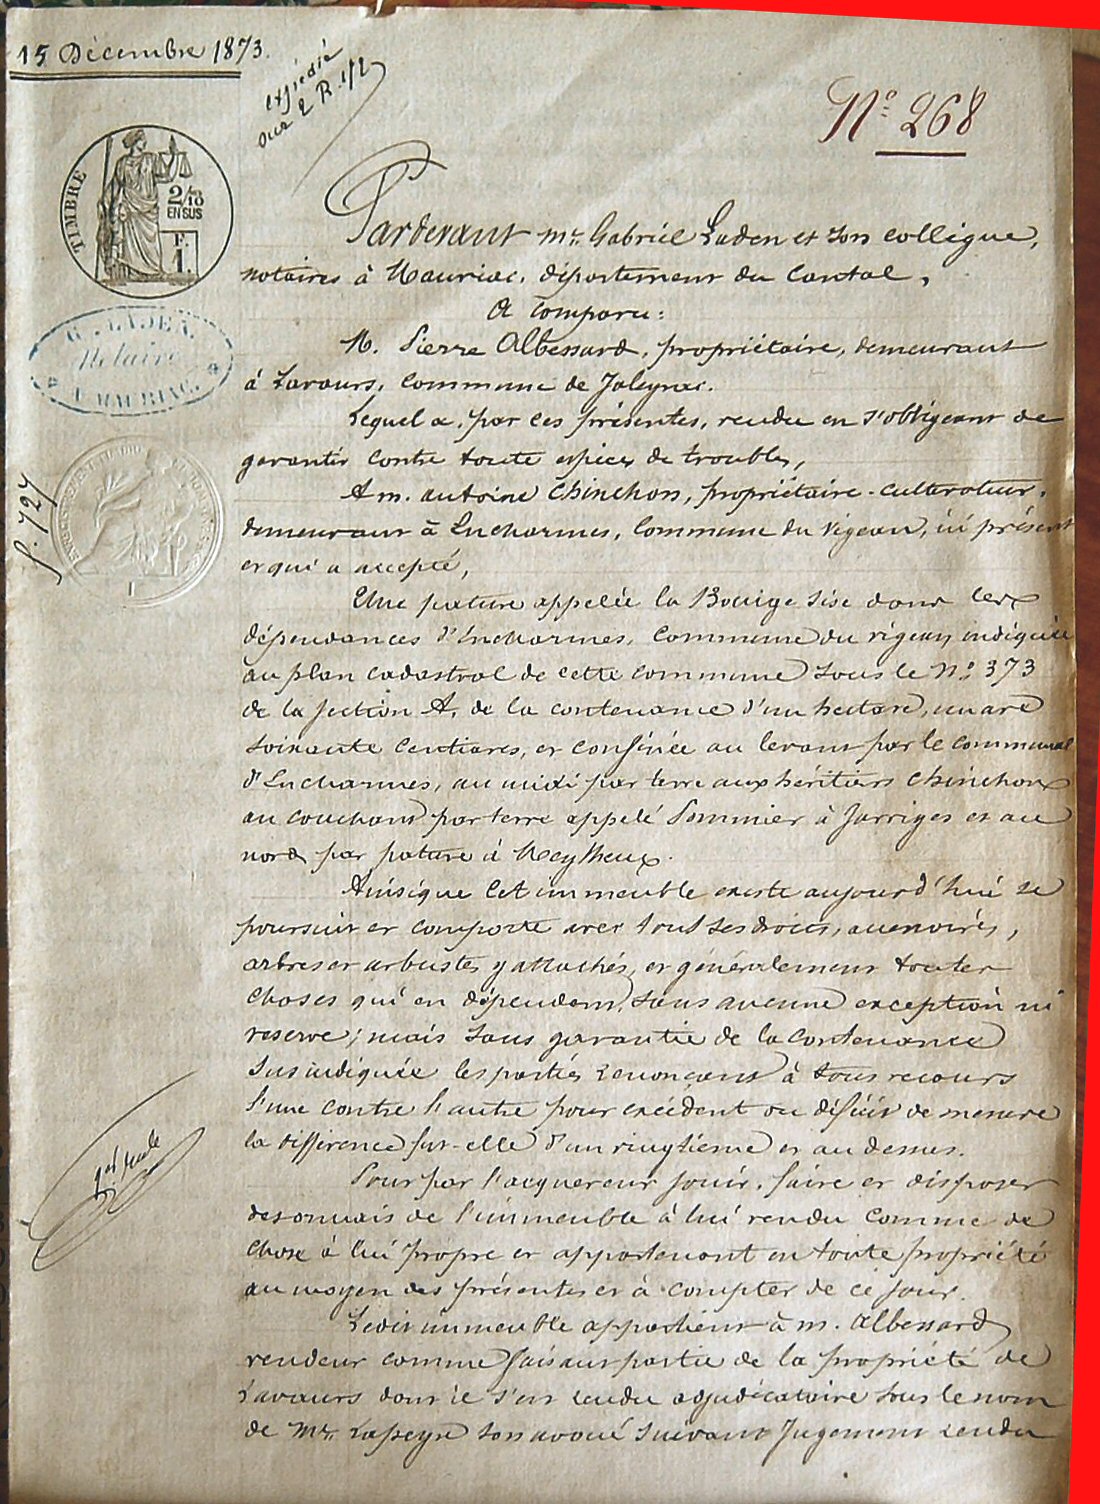 15 Décembre 1873.
expédié
sur 2 R. 1/2
N° 268
TIMBRE
2/10
EN SUS
F.
1.
Pardevant Me. Gabriel Laden et son collègue,
notaires à Mauriac, département du Cantal,
A comparu:
M. Pierre Albessard, propriétaire, demeurant
à Lavaurs, commune de Jaleyrac.
G. LADEN
Notaire
A MAURIAC.
Lequel a, par ces présentes, vendu en s'obligeant de
garantir contre toute espèces de troubles,
A m. antoine Chinchon, propriétaire-cultivateur,
demeurant à Encharmes, Commune du Vigean, ici présent
et qui a accepté,
f. 727
Une pature appelée la Bouige sise dans les
dépendances d'Encharmes, Commune du Vigean, indiquée
au plan cadastral de cette commune sous le N°. 373
de la section A, de la contenance d'un hectare, un are
soixante centiares, et confinée au levant par le communal
d'Encharmes, au midi par terre aux héritiers Chinchon
au couchant par terre appelé Sommier à Jarriges et au
nord par pature à
Ainsi que cet immeuble existe aujourd'hui se
poursuit et comporte avec tous ses droits, accessoires,
arbres et arbustes y attachés, et généralement toutes
choses qui en dépendent, sans aucune exception ni
reserve; mais sans garantie de la contenance
sus indiquée les parties renonçant à tous recours
l'une contre l'autre pour excédent ou déficit de mesure
la différence fut-elle d'un vingtième et au dessus.
1er role
Pour par l'acquereur jouir, faire et disposer
desormais de l'immeuble à lui vendu comme de
chose à lui propre et appartenant en toute propriété
au moyen des présentes et à compter de ce jour.
Ledit immeuble appartient à m. Albessard
vendeur comme faisant partie de la propriété de
Lavaurs dont il s'est rendu adjudicataire sous le nom
de Me. Lapeyre son avoué suivant Jugement rendu